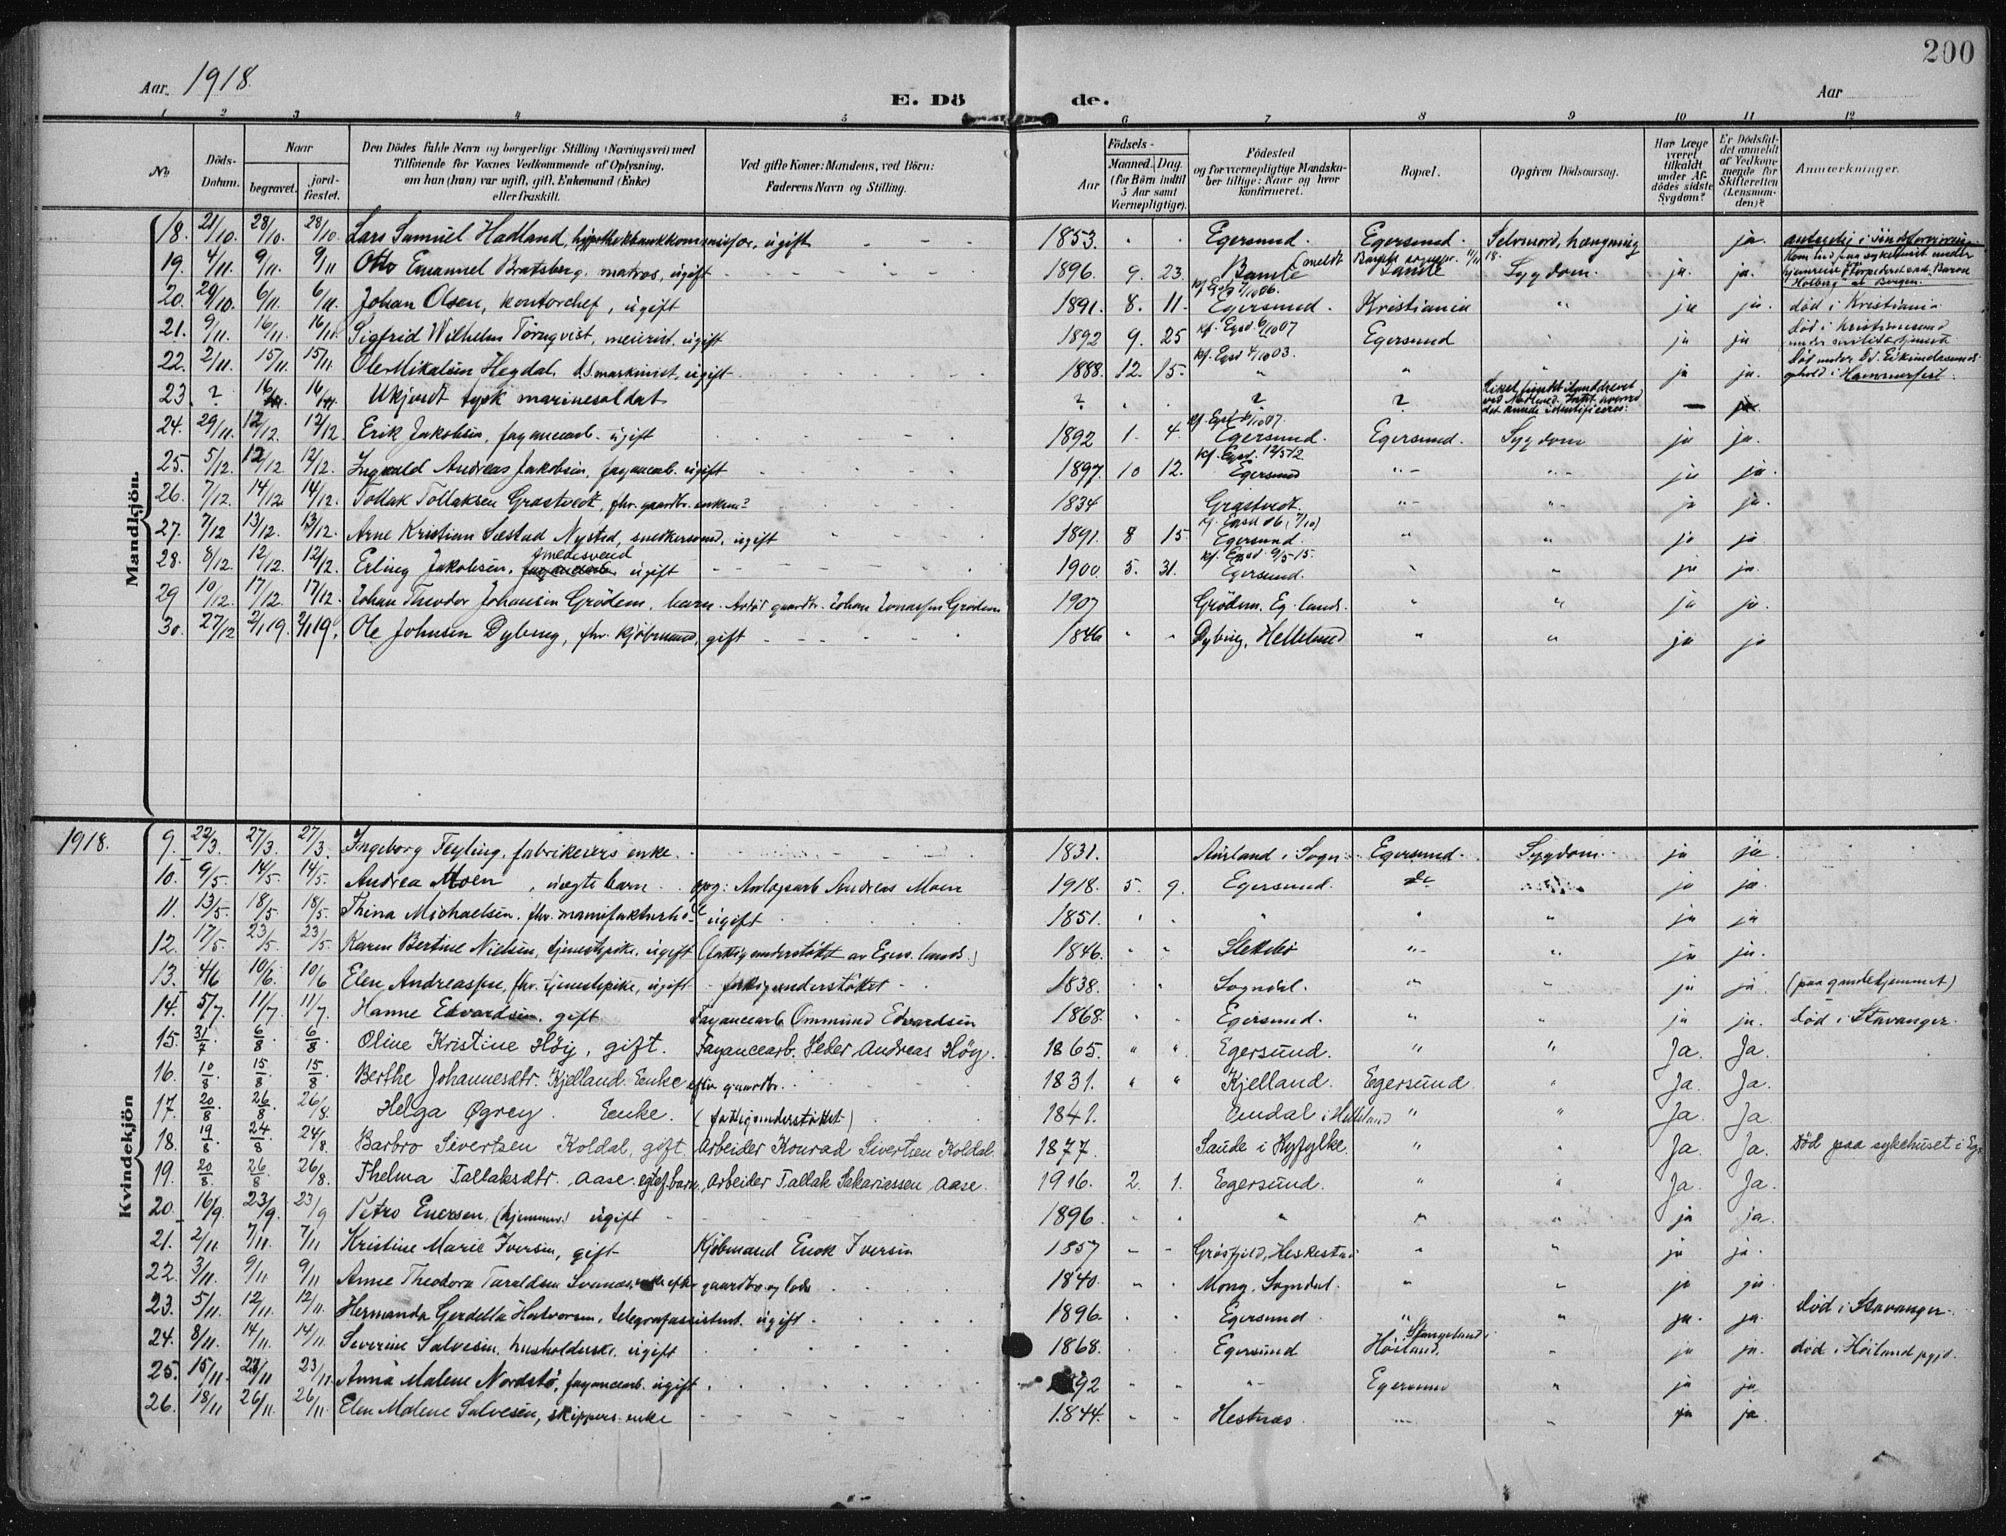 200
Aar. 1918.
E. Dö de.
Aar
1 2 3 4 5 6 7 8 9 10 11 12
No
Döds-Datum.
Naar
begravet.
jord-fæstet.
Den Dödes fulde Navn og borgerlige Stilling (Næringsvei) med
Tilföiende for Voxnes Vedkommende af Oplysning,
om han (hun) var ugift, gift, Enkemand (Enke)
eller fraskilt.
Ved gifte Koner: Mandens, ved Börn:
Faderens Navn og Stilling.
Födsels-
Aar
Maaned. Dag.
(for Börn indtil
5 Aar samt
Værnepligtige).
Födested
og for værnepligtige Mandska-
ber tillige: Naar og hvor
konfirmeret.
Bopæl.
Opgiven Dödsaarsag.
Har Læge
været
tilkaldt
under Af-
dödes sidste
Sygdom?
Er Dödsfal-
det anmeldt
af Vedkom-
mende for
Skifteretten
(Lensman-
den)?
Anmærkninger.
Mandkjön.
18. 21/10. 28/10. 28/10. Lars Samuel Hadland, hypothekbankkommissær, ugift 1853. Egersund. Egersund. Selvmord, hængning ja.
19. 4/11. 9/11. 9/11 Otto Emanuel Bratsberg, matros, ugift 1896. 9. 23. Bamle Bamle Sygdom. ja. ja.
20. 29/10. 6/11. 6/11. Johan Olsen, kontorchef, ugift 1891. 8. 11. Egersund. Kristiania " ja ja. død i Kristiania
21. 9/11. 16/11. 16/11. Sigfrid Wilhelm Törnqvist, meierist, ugift 1892 9. 25 kf. Egsd 6/10 07 Egersund " ja ja død i Kristiansand
22. 2/11. 15/11. 15/11. Ole Mikalsen Hegdal, d.s. maskinist, ugift 1888. 12. 15. kf. Egsd 4/10 03. " " " ja ja. ophold i Hammerfest.
23. ? 16/11. 16/11 Ukjendt tysk marinesoldat ? ? ? ja
24. 29/11. 12/12. 12/12. Erik Jakobsen, fayancearb. ugift 1892 1. 4. Egersund. Egersund. Sygdom ja ja.
25. 5/12. 12/12. 12/12. Ingvald Andreas Jakobsen, fayancearb. ugift 1897. 10 12. kf. Egsd. 12/5 12 Egersund "- "- ja ja.
26. 7/12. 14/12. 14/12. Tollak Tollaksen Grastvedt, fhv. gaardbr. enkem? 1834 Grastvedt. "- " ja ja.
27. 7/12 13/12. 13/12. Arne Kristian Sæstad Nysted, snekkersvend, ugift 1891. 8 15. Egersund. " " ja ja.
28. 8/12. 12/12. 12/12. Erling Jakobsen, smedesvend ugift 1900. 5. 31. kf. Egsd. 9/5-15. Egersund. " " ja ja.
29 10/12. 17/12. 17/12. Johan Theodor Johansen Grödem, barn. gaardbr. Johan Jonassen Grödem 1907 Grödem. Eg. lands. " " ja ja.
30. 27/12 2/1 19. 2/1 19. Ole Johnsen Dybing, fhv. kjöbmand, gift 1846 " " Dybing, Helleland " " ja ja
1918.
Kvindekjön
9. 22/3. 27/3. 27/3. Ingeborg Feyling, fabrikeiers enke. 1831. Aurland i Sogn. Egersund. Sygdom. ja ja.
10. 9/5. 14/5. 14/5. Andrea Moen, uægte barn. opg: Anlægsarb. Andreas Moen 1918. 5. 9. Egersund. do ja ja.
11. 13/5. 18/5. 18/5. Thina Michaelsen, fhv. manufakturhdl. ugift 1851. " " " " " ja ja
12. 17/5. 23/5. 23/5. Karen Bertine Nielsen, tjenestepike, ugift (fattigunderstöttet av Egers. lands.) 1846. " " Slettebö "- " ja ja.
13. 4/6 10/6. 10/6 Elen Andreassen, fhv. tjenestepike, ugift - fattigunderstöttet - 1838. " " Sogndal. " " ja ja. (paa gamlehjemmet)
14. 5/7. 11/7. 11/7. Hanne Edvardsen. gift Fayancearb. Ommund Edvardsen 1868. " " Egersund. " " ja ja. død i Stavanger.
15. 31/7 6/8 6/8 Oline Kristine Höy, gift. Fayancearb. Peder Andreas Höy. 1865. " " Egersund. " " Ja. Ja.
16. 10/8 15/8 15/8 Berthe Johannesdtr. Kjelland. Enke efter gaardbr. 1831. " " Kjelland. Egersund " Ja. Ja.
17. 20/8 26/8 26/8. Helga Øgrey. Enke. (fattigunderstöttet) 1841. Omdal i Helleland " " Ja. Ja.
18. 19/8 24/8 24/8. Barbro Sivertsen Koldal, gift. Arbeider Konrad Sivertsen Koldal. 1877. Saude i Ryfylke. " " Ja. Ja. Död paa sykehuset i Eg.
19. 20/8 26/8 26/8. Thelma Tallaksdtr. Aase. egtef. barn, Arbeider Tallak Sakariassen Aase. 1916. 2. 1. Egersund. " " Ja. Ja.
20. 16/9. 23/9. 23/9 Petro Enersen, (hjemmev.) ugift 1896. " " " " " ja ja.
21. 2/11 7/11. 7/11 Kristine Marie Iversen, gift Kjöbmand Enok Iversen 1857 - - Grösfjeld, Heskestad " " ja ja.
22. 3/11. 9/11 9/11. Anne Theodora Taraldsen Svanæs, enke efter gaardbr. og lods 1840. " " Mong, Sogndal. " " ja ja.
23. 5/11. 12/11. 12/11. Hermanda Gerdella Halvorsen, telegrafassistent. ugift 1896. " " Egersund " " ja. ja. Död i Stavanger.
24. 8/11. 14/11. 14/11. Severine Salvesen, husholderske. ugift 1868. Egersund Stangeland, Höiland. " ja ja. død i Höiland pgjd.
25. 15/11. 23/11 23/11. Anna Malene Nordstö, fayancearb. ugift 1892 " " -"- Egersund " ja ja.
26. 18/11 26/11. 26/11. Elen Malene Salvesen, skippers enke 1844. - " Hestnæs " " ja ja.